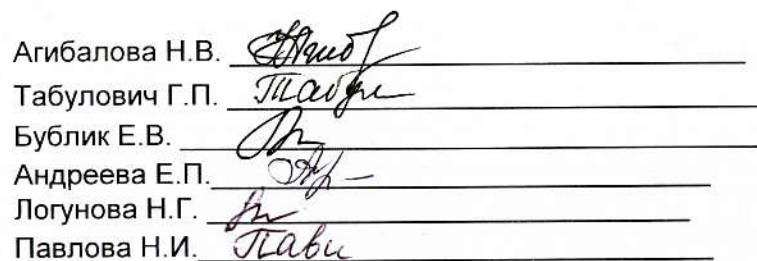 Агибалова Н.В.
Табулович Г.П. Табул
Бублик Е.В.
Андреева Е.П.
Логунова Н.Г.
Павлова Н.И. Павл